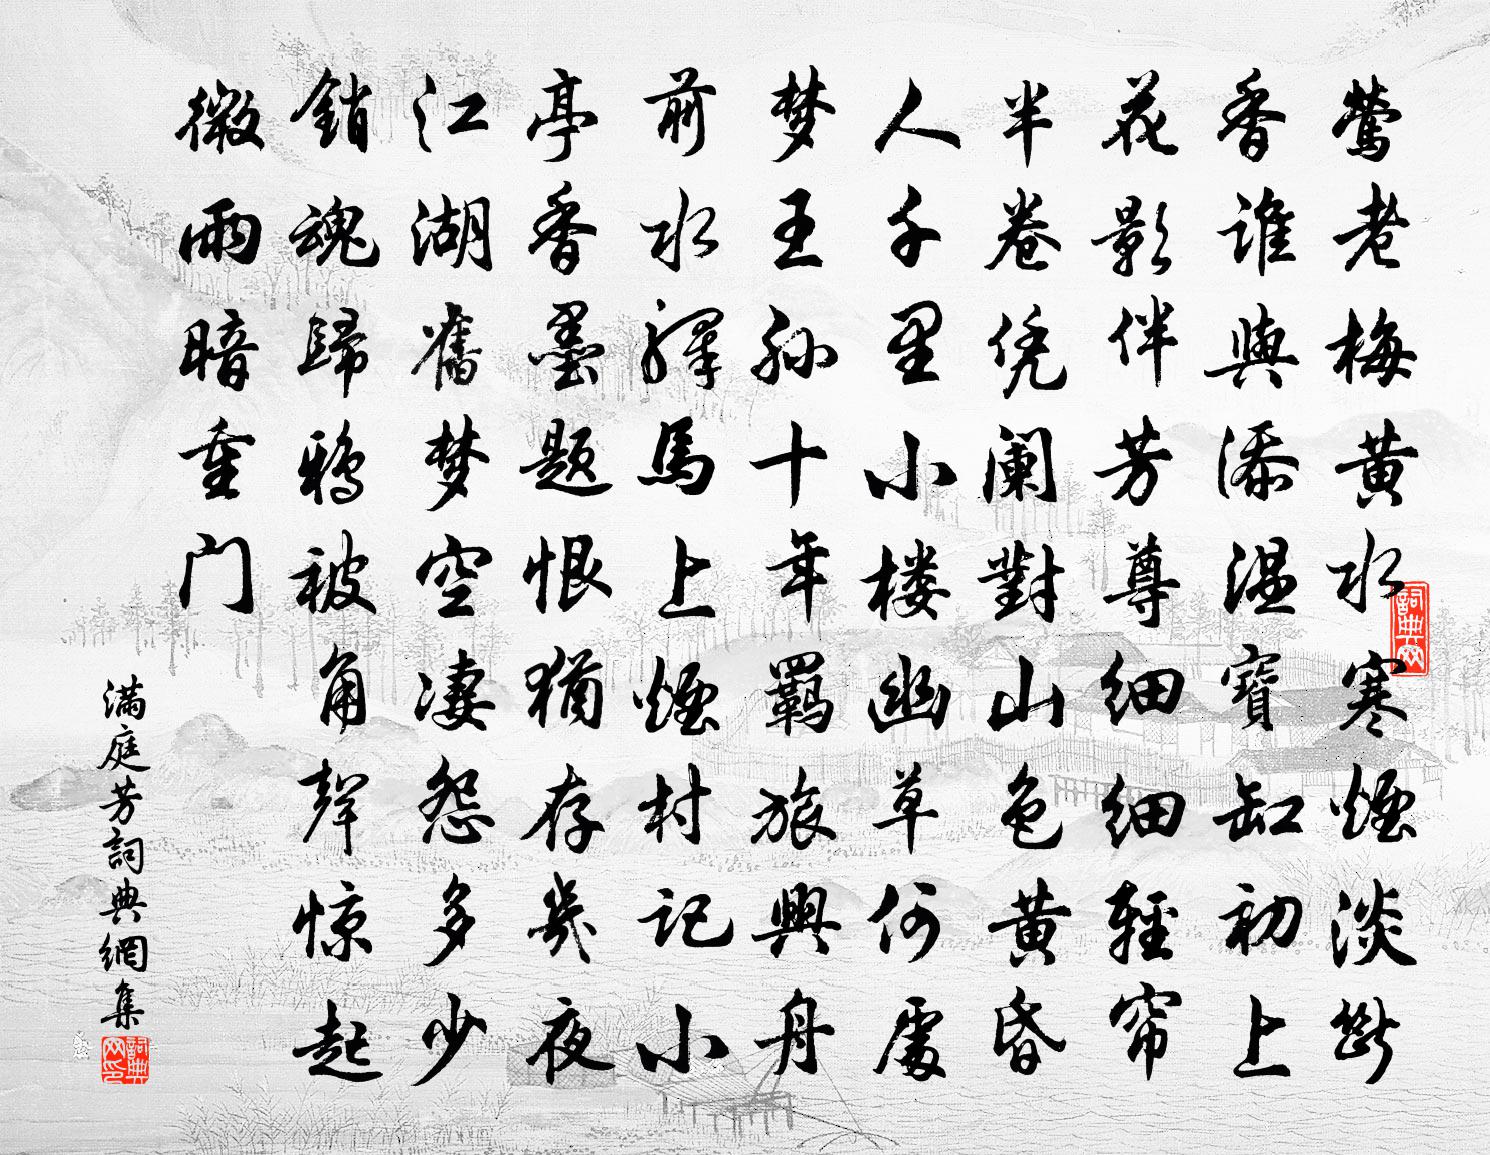 鶯老梅黄水寒煙淡斷
香谁與添温寶缸初上
花影伴芳尊細細輕帘
半卷凭阑對山色黄昏
人千里小楼幽草何處
梦王孙十年羈旅興舟
前水驛馬上煙村記小
亭香墨题恨猶存幾夜
江湖舊梦空凄怨多少
銷魂歸鴉被角聲惊起
微雨暗重门
满庭芳詞典網集
詞典网
詞典网印